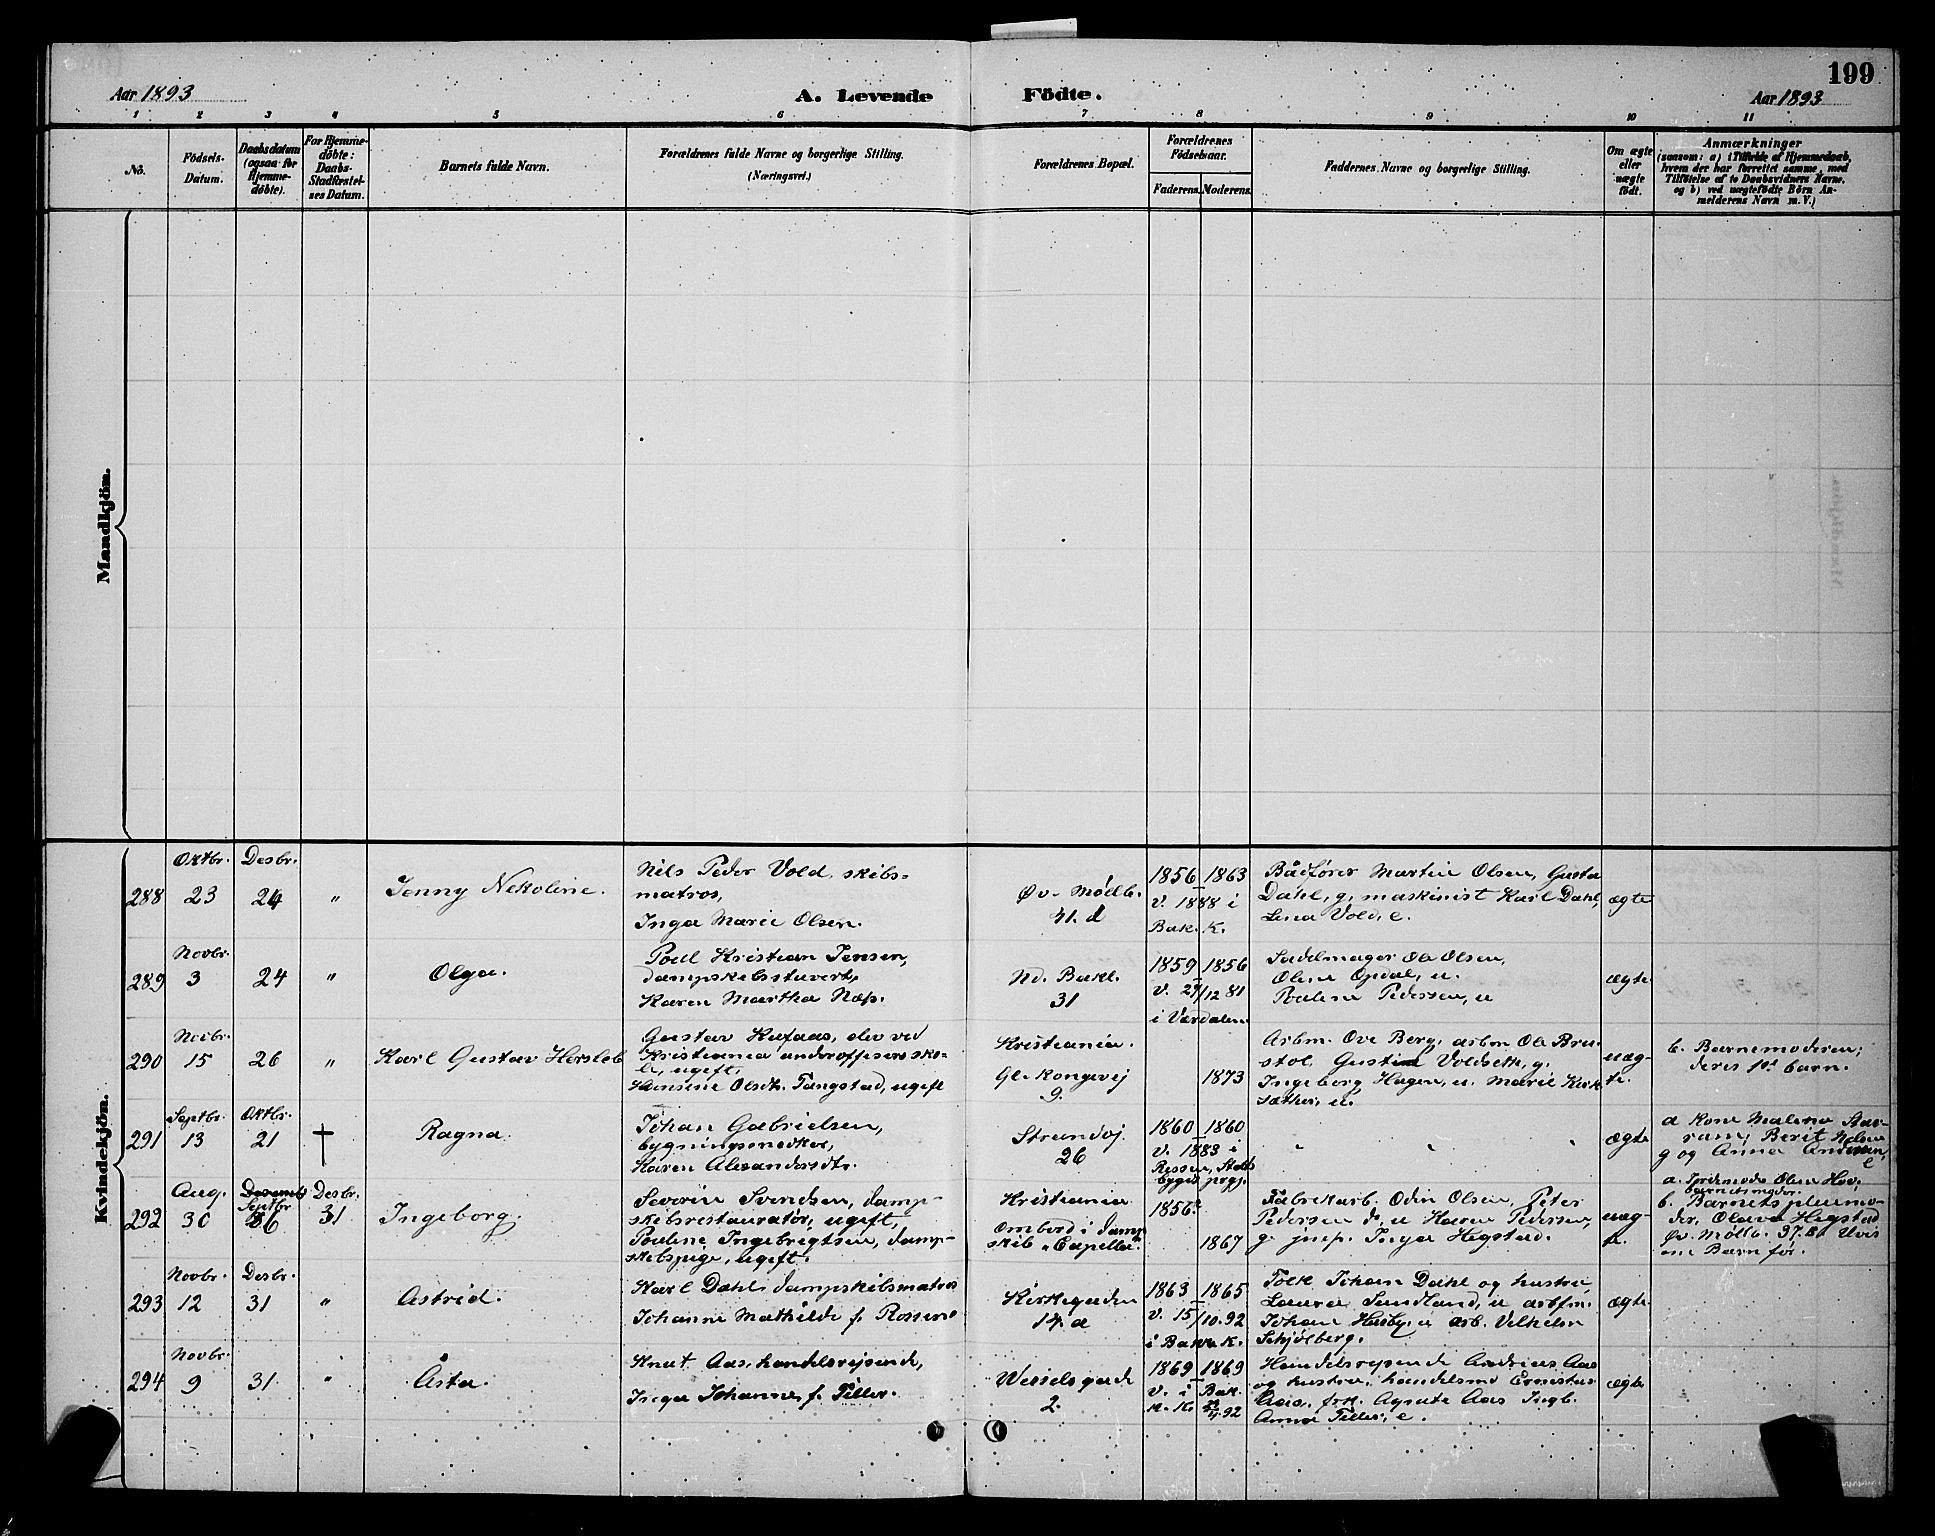 199
Aar 1893
A. Levende Födte.
Aar 1893
1 2 3 4 5 6 7 8 9 10 11
No.
Födsels-
Datum.
Daabsdatum
(ogsaa for
Hjemme-
döbte).
For Hjemme-
döbte:
Daabs-
Stadfæstel-
ses Datum.
Barnets fulde Navn.
Forældrenes fulde Navne og borgerlige Stilling.
(Næringsvei.)
Forældrenes Bopæl.
Forældrenes
Födselsaar.
Faderens. Moderens.
Faddernes Navne og borgerlige Stilling.
Om ægte
eller
uægte
födt.
Anmærkninger
(saasom: a) i Tilfælde af Hjemmedaab,
hvem der har forrettet samme, med
Tilföielse af to Daabsvidners Navne,
og b) ved uægtefödte Börn An-
melderens Navn m.V.)
Mandkjön.
Kvindekjön.
288
Oktbr.
23
Desbr.
24
"
Jenny Nekoline.
Nils Peder Vold, skibs-
matros,
Inga Marie Olsen.
Øv. Møllb.
41. d
1856 1863
V. 1888 i
Bak. K.
Bådfører Martin Olsen, Gusta
Dahl, g. maskinist Karl Dahl,
Lina Vold, e.
ægte
289
Novbr.
3
24
"
Olga.
Poul Kristian Jensen,
dampskibsstuvert,
Karen Martha Næs.
Nd. Bakl.
31
1859 1856
V. 29/12 81
i Værdalen
Sadelmager Ole Olsen,
Oline Opdal, u.
Pauline Pedersen, u
ægte
290
Novbr.
15
26
"
Karl Gustav Hersleb
Gustav Kufaas, elev ved
Kristiania underoffisersko-
le, ugift,
Hansine Olsdt. Tangstad, ugift
Kristiania.
Gl. Kongevej
9.
1873
Arbm. Ove Berg, arbm Ole Bru-
stol, Gustine Voldseth, g.
Ingeborg Hagen, u. Marie Kirk-
sæther, u.
uæg-
te.
b. Barnemoderen;
deres 1ste barn.
291
Septbr.
13
Oktbr.
21
†
Ragna.
Johan Gabrielsen,
bygningssnedker,
Karen Alexandersdtr.
Strandvej
26
1860 1860
V. 1883 i
Rissen, Stads-
bygds prgj.
" " "
ægte
a Kone Malena Aas-
ram, Berit Nilsen
g og Anna Andersen,
e
292
Aug.
30
Septbr
26
Desbr.
31
Ingeborg.
Severin Svendsen, damp-
skibsrestauratør, ugift,
Pauline Ingebrigtsen, damp-
skibspige, ugift.
Kristiania
Ombord i damp-
skib „Capella“
1856?
1867
Fabrikarb. Odin Olsen, Peter
Pedersen do, u Karen Pedersen,
g. jnfr. Inga Hegstad.
uæg-
te.
a. Jordmoder Olea Hov,
barnets moder.
b. Barnets pleiemo-
der, Olava Hegstad
Øv. Møllb. 37. b. Uvis
om Barn før.
293
Novbr.
12
Desbr.
31
"
Astrid.
Karl Dahl, dampskibsmatros
Johanne Mathilde f. Rossen
Kirkegaden
14. a
1863 1865
V. 15/10. 92
i Bakke K.
Folk. Johan Dahl og hustru
Laura Sundland, u arbfm.
Johan Husby, u arb. Vilhelm
Schjølberg.
ægte
294
Novbr.
9
31
"
Åsta.
Knut Aas, handelsrejsende,
Inga Johanne f. Tiller.
Wesselsgade
2.
1869 1869
V. i Bak.
K. 92
Handelsrejsende Andreas Aas
og hustru, handelsmd Ernestus
Aas, frk. Agnete Aas Ingb.
Anna Tiller, e.
ægte